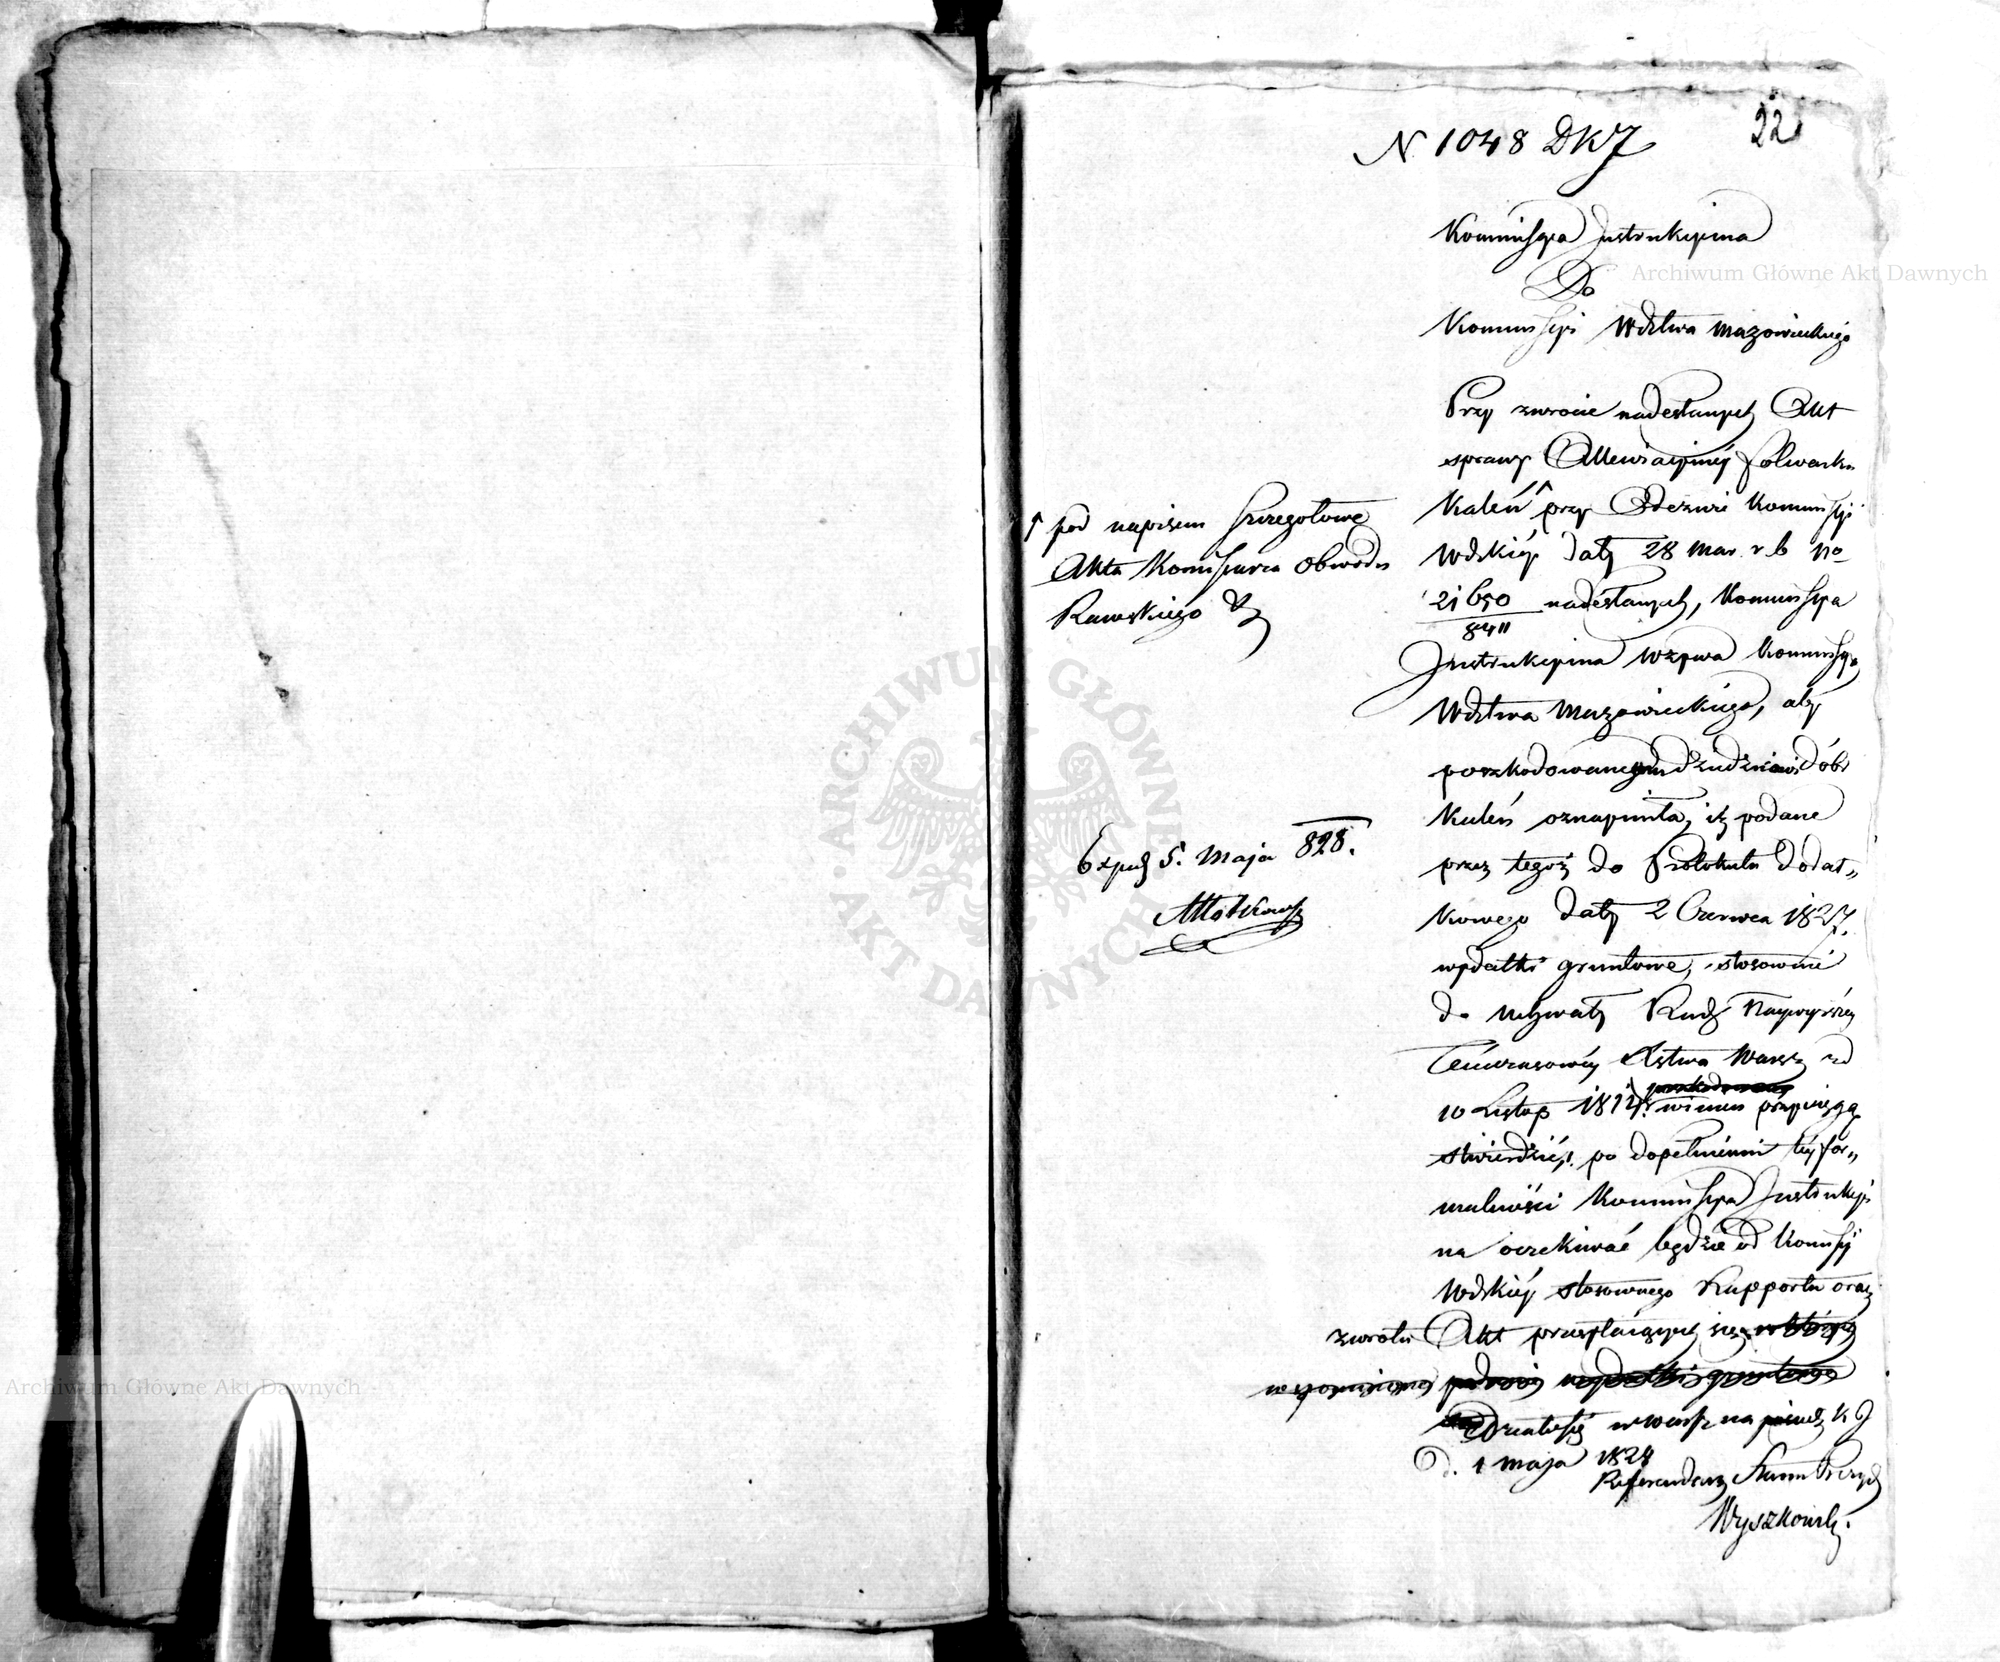 22
N 1048 DKJ
Kommissya Instrukcyina
Do
Kommissyi Wdztwa Mazowieckiego
Przy zwrocie nadesłanych Akt
sprawy Allewiacyinéy folwarku
Kaleń przy Odezwie Kommissyi
Wdzkiéy daty 28 Mar. r. b No
21650 nadesłanych, Kommissya
Instrukcyina wzywa Kommissyą
Wdztwa Mazowieckiego, aby
poszkodowanego dóbr
Kaleń oznaymiła, iż podane
przez tegoż do Protokułu dodat„
kowego daty 2 Czerwca 1827.
wydatki gruntowe, stosownie
do uchwały Rady Naywyższey
Tymczasowéy Xstwa Warsz. od
10 Listop. winien przysięgą
stwierdzić, po dopełnieniu téy for„
malności Kommissya Instrukcyi
na oczekiwać będzie od Komisyi
Wdzkiéy stosownego Rapportu oraz
zwrotu Akt przesyłaiących się
wspomniony wydatki gruntowe
Działo się w Warsz. na K J
d. 1 Maja 1828
Referendarz Stanu Prezyd
Wyszkowski.
pod napisem szczegołowe
Akta Komissarza Obwodu
Rawskiego
Exped 5. Maja 828.
ARCHIWUM GŁÓWNE AKT DAWNYCH
Archiwum Główne Akt Dawnych
Archiwum Główne Akt Dawnych